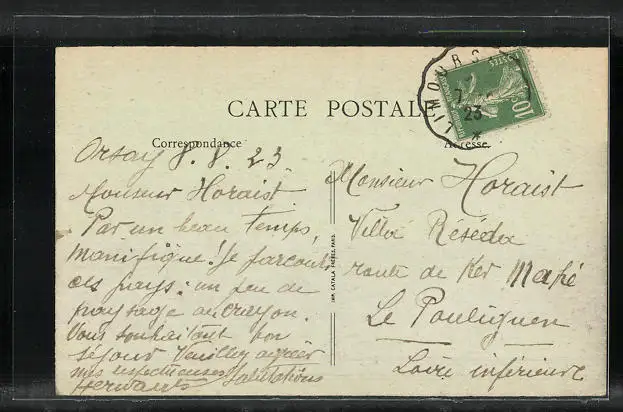 CARTE POSTALE
Correspondance
Adresse.
LIMOURS
7
23
*
POSTES
10c
Orsay 8.8.23.
Monsieur Horaist
Par un beau temps,
manifique! Je parcours
ces pays: un peu de
paysage au crayon.
Vous souhaitant bon
séjour Veuillez agréer
mes respectueuses Salutations
Herwarts
IMP. CATALA FRÈRES, PARIS.
Monsieur Horaist
Villa Réséda
route de Ker Mahé
Le Pouliguen
Loire inférieure